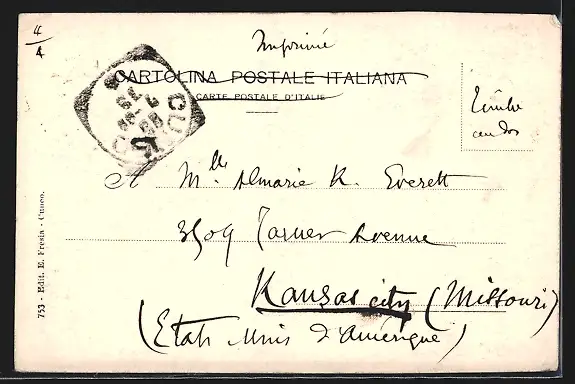 4/4
Imprimé
CARTOLINA POSTALE ITALIANA
CARTE POSTALE D'ITALIE
CUNEO
Timbre
au dos
A Mlle Almarie K. Everett
3509 Avenue
Kansas city (Missouri)
(Etats Unis d'Amérique)
753 - Edit. E. Fresia - Cuneo.